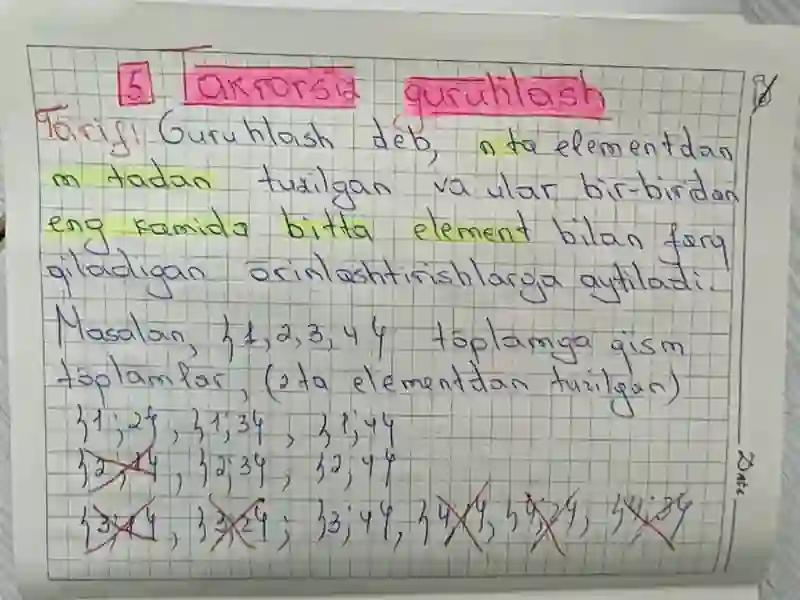 5 Takrorsiz guruhlash
Ta'rif: Guruhlash deb, n ta elementdan
m tadan tuzilgan va ular bir-birdan
eng kamida bitta element bilan farq
qiladigan o'rinlashtirishlarga aytiladi.
Masalan, {1, 2, 3, 4} to'plamga qism
to'plamlar, (2 ta elementdan tuzilgan)
{1; 2}, {1; 3}, {1; 4}
{2; 1}, {2; 3}, {2; 4}
{3; 1}, {3; 2}; {3; 4}, {4; 1}, {4; 2}, {4; 3}
Date